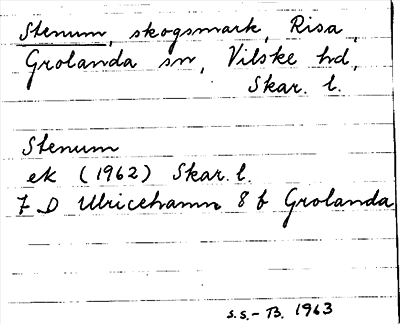 Stenum, skogsmark, Risa,
Grolanda sn, Vilske hd,
Skar. l.
Stenum
ek (1962) Skar. l.
7 D Ulricehamn 8 f Grolanda
S.S.-B. 1963